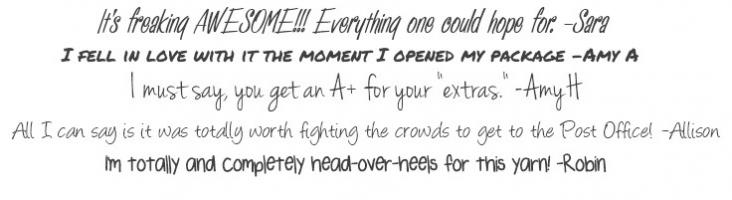 It's freaking AWESOME!!! Everything one could hope for. -Sara
I FELL IN LOVE WITH IT THE MOMENT I OPENED MY PACKAGE -AMY A
I must say, you get an A+ for your "extras." -Amy H
All I can say is it was totally worth fighting the crowds to get to the Post Office! -Allison
I'm totally and completely head-over-heels for this yarn! -Robin